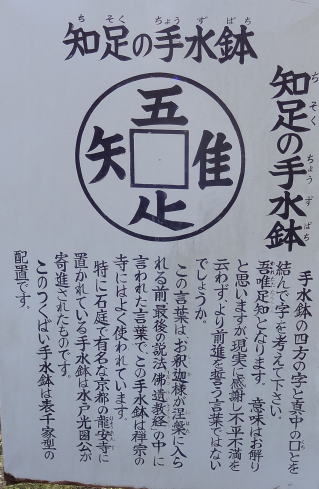 知足の手水鉢
ち そく ちょう ず ばち
知足の手水鉢
ち そく ちょう ず ばち
五
隹
止
矢
手水鉢の四方の字と真中の口とを
結んで字を考えて下さい。
吾唯足知となります。意味はお解り
と思いますが現実に感謝し不平不満を
云わず、より前進を誓う言葉ではない
でしょうか。
この言葉はお釈迦様が涅槃に入ら
れる前、最後の説法「佛遺教経」の中に
言われた言葉で、この手水鉢は禅宗の
寺にはよく使われています。
特に石庭で有名な京都の龍安寺に
置かれている手水鉢は水戸光圀公が
寄進されたものです。
このつくばい手水鉢は表千家型の
配置です。